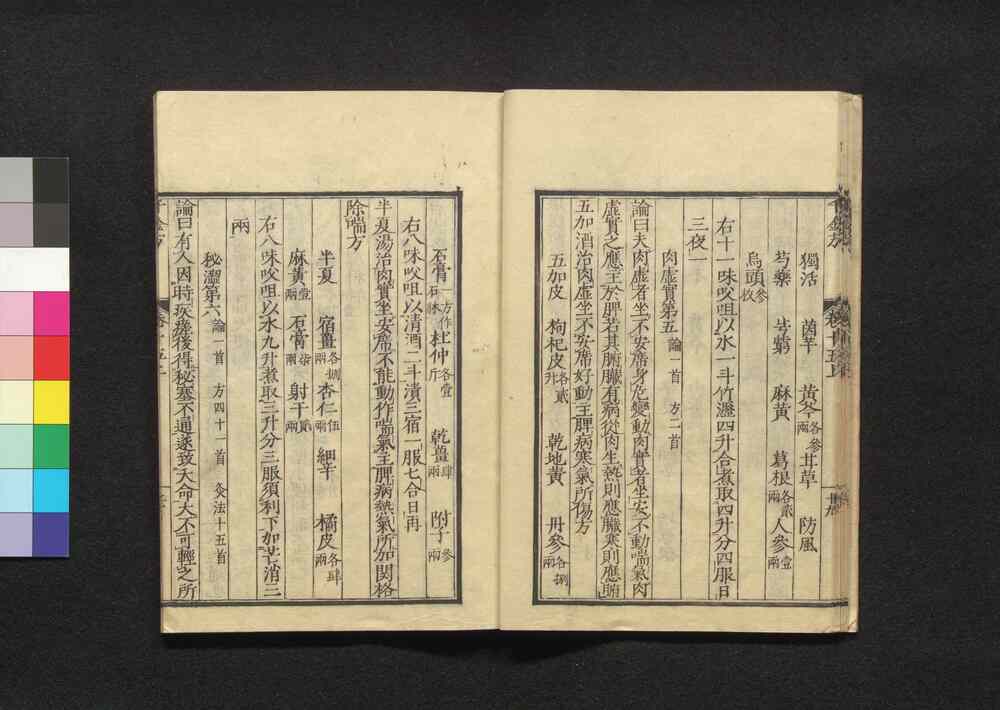 獨活 茵芋 黃芩各參兩 甘草 防風
芍藥 芎藭 麻黃 葛根各貳兩 人參壹兩
烏頭參枚
右十一味㕮咀以水一斗竹瀝四升合煮取四升分四服日
三夜一
肉虛實第五論一首 方二首
論曰夫肉虛者坐不安席身危變動肉實者坐安不動喘氣肉
虛實之應主於脾若其腑臟有病從肉生熱則應臟寒則應腑
五加酒治肉虛坐不安席好動主脾病寒氣所傷方
五加皮 枸杞皮各貳升 乾地黃 丹參各捌兩
石膏一方作石牀 杜仲各壹斤 乾薑肆兩 附子參兩
右八味㕮咀以清酒二斗漬三宿一服七合日再
半夏湯治肉實坐安席不能動作喘氣主脾病熱氣所加関格
除喘方
半夏 宿薑各捌兩 杏仁伍兩 細辛 橘皮各肆兩
麻黃壹兩 石膏柒兩 射干貳兩
右八味㕮咀以水九升煮取三升分三服須利下加芒消三
兩
秘澀第六論一首 方四十一首 灸法十五首
論曰有人因時疾瘥後得秘塞不通遂致夭命大不可輕之所